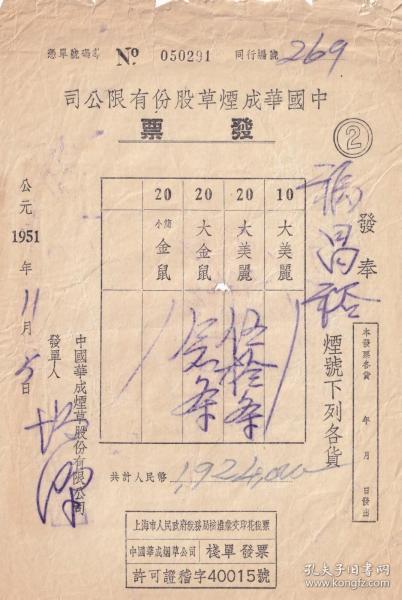 憑單號碼 № 050291 同行編號 269
中國華成煙草股份有限公司
發票
②
發奉
福昌裕
煙號下列各貨
10 大美麗
20 大美麗 伍拾条
20 大金鼠 念条
20 小簡金鼠
本發票各貨 年 月 日發出
共計人民幣 1,924,000
公元1951年11月5日
發單人
中國華成煙草股份有限公司
上海市人民政府稅務局核准彙交印花稅票
中國華成烟草公司 棧單發票
許可證稽字40015號
孔夫子旧书网
www.kongfz.com